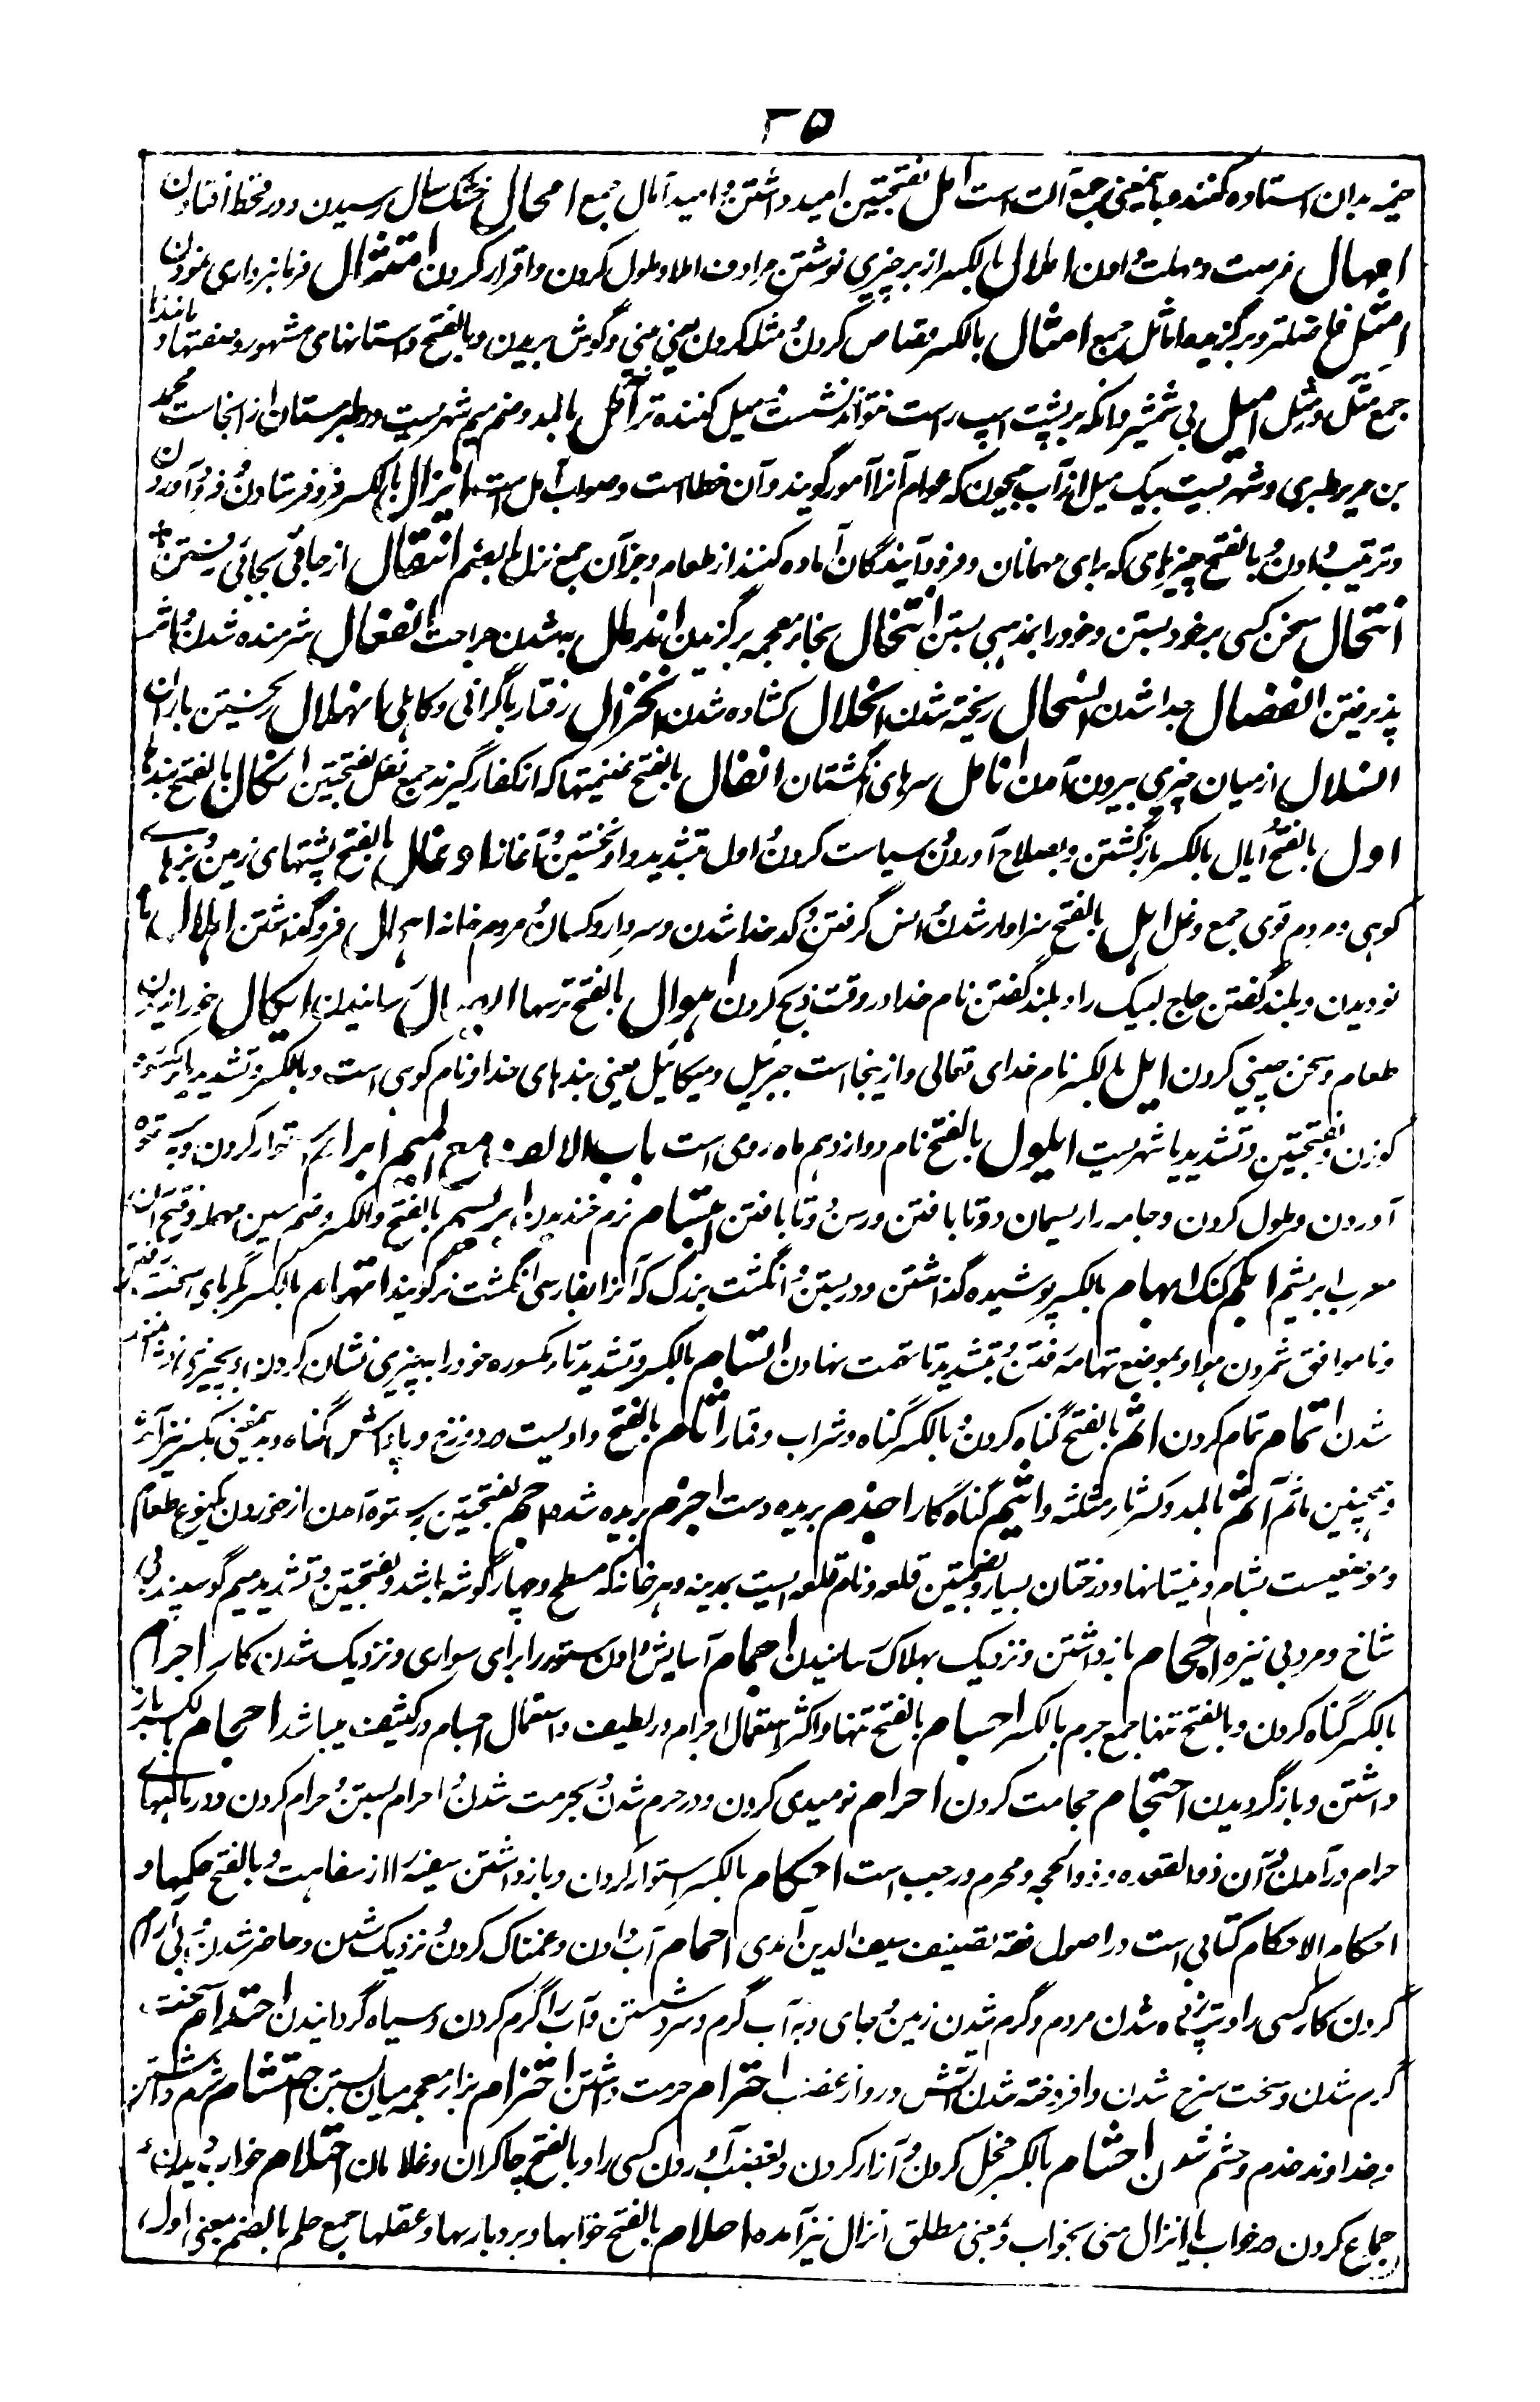 ۳۵
خیمه بدان استاده کنند و باینمعنی جمع آلت است امل بفتحتین امید داشتن و امید آمال جمع امحال خشک سال رسیدن و در قحط افتادن
امهال فرصت و مهلت دادن املال بالکسر از بر چیزی نوشتن مرادف املا و ملول کردن و اقرار کردن امتثال فرمانبرداری نمودن
امثل فاضلتر و برگزیده اماثل جمع امثال بالکسر قصاص کردن و مثله کردن یعنی بینی و گوش بریدن و بالفتح داستانهای مشهور و صفتها و مانندها
جمع مثل و مثل امیل بی شمشیر و آنکه بر پشت اسپ راست نتواند نشست و میل کننده تر آمل بالمد و ضم میم شهریست در طبرستان از انجاست محمد
بن جریر طبری و شهریست بیک میل از آب جیحون که عوام آنرا آمو گویند و آن خطاست و صواب آمل است انزال بالکسر فرو فرستادن و فرود آوردن
و ترتیب دادن و بالفتح چیزهای که برای مهمانان و فرود آیندگان آماده کنند از طعام و جز آن جمع نزل بالضم انتقال از جائی بجائی رفتن
انتحال سخن کسی بر خود بستن و خود را بمذهبی بستن انتخال بخاء معجمه برگزیدن اندمال به شدن جراحت انفعال شرمنده شدن و اثر
پذیرفتن انفصال جدا شدن انسحال ریخته شدن انحلال گشاده شدن انخزال رفتار با گرانی و کاهلی انهلال ریختن باران
انسلال از میان چیزی بیرون آمدن انامل سرهای انگشتان انفال بالفتح غنیمتها که از کفار گیرند جمع نفل بفتحتین انکال بالفتح بندها
اول بالفتح و ایال بالکسر بازگشتن و بصلاح آوردن و سیاست کردن و اول بتشدید واو نخستین و آغاز اوغال بالفتح پشتهای زمین و بزهای
کوهی و مردم قوی جمع وغل اهل بالفتح سزاوار شدن و انس گرفتن و کدخدا شدن و سزاوار و کسان و مردم خانه اهمال فرو گذاشتن اهلال ماه
نو دیدن و بلند گفتن حاج لبیک را و بلند گفتن نام خدا در وقت ذبح کردن اهوال بالفتح ترسها ایکال خورانیدن
طعام و سخن چینی کردن ایل بالکسر نام خدای تعالی و ازینجا است جبرئیل و میکائیل یعنی بندهای خدا و نام کوهی است و بالکسر و تشدید یا بز کوهی
گوزن و بفتحتین و تشدید یا شهریست ایلول بالفتح نام دوازدهم ماه رومی است باب الالف مع المیم ابرام استوار کردن و به ستوه
آوردن و ملول کردن و جامه را ریسمان دوتا بافتن و رسن دوتا بافتن ابتسام نرم خندیدن ابریسم بالفتح و الکسر و ضم سین مهمله و فتح آن
معرب ابریشم ابکم گنگ ابهام بالکسر پوشیده گذاشتن و در بستن و انگشت بزرگ که آنرا بفارسی انگشت نر گویند اتهام بالکسر گرمای سخت رفتن
و ناموافق شمردن هوا و بموضع تهامه رفتن و بتشدید تا تهمت نهادن اتسام بالکسر و تشدید تا مکسوره خود را بچیزی نشان کردن و بچیزی
شدن اتمام تمام کردن اثم بالفتح گناه کردن و بالکسر گناه و شراب و قمار اثام بالفتح وادیست در دوزخ و پاداش گناه و بدینمعنی بکسر نیز آمده
و همچنین مأثم آثم بالمد و کسر ثاء مثلثه و اثیم گناه گار اجذم بریده دست اجزم بریده شده اجم بفتحتین به ستوه آمدن از خوردن یکنوع طعام
و موضعیست بشام و نیستانها و درختان بسیار و بضمتین قلعه و نام قلعه ایست بمدینه و هر خانه که مسطح و چهار گوشه باشد و بفتحتین و تشدید میم گوسپند بی
شاخ و مرد بی نیزه احجام باز داشتن و نزدیک بهلاک رسانیدن اجمام آسایش دادن ستور را برای سواری و نزدیک شدن کار اجرام
بالکسر گناه کردن و بالفتح تنها جمع جرم بالکسر اجسام بالفتح تنها و اکثر استعمال اجرام در لطیف و استعمال اجسام در کثیف میباشد احجام بالکسر باز
داشتن و باز گردیدن احتجام حجامت کردن احرام نومیدی کردن و در حرم شدن و بحرمت شدن و احرام بستن و حرام کردن و در ماههای
حرام در آمدن و آن ذوالقعده و ذوالحجه و محرم و رجب است احکام بالکسر استوار کردن و باز داشتن سفیه را از سفاهت و بالفتح حکمها و
احکام الاحکام کتابی است در اصول فقه تصنیف سیف الدین آمدی احمام آب دادن و غمناک کردن و نزدیک شدن و حاضر شدن و بی آرام
کردن کار کسی را و تب زده شدن مردم و گرم شدن زمین و جای و به آب گرم و سرد شستن و آب را گرم کردن و سیاه گردانیدن احتدام سخت
گرم شدن و سخت سرخ شدن و افروخته شدن آتش و روز از غضب احترام حرمت داشتن احتزام بزاء معجمه میان بستن احتشام شرم داشتن
و خداوند خدم و حشم شدن احشام بالکسر خجل کردن و آزار کردن و بغضب آوردن کسی را و بالفتح چاکران و غلامان احتلام خواب دیدن و
جماع کردن در خواب با انزال منی بخواب و بمعنی مطلق انزال نیز آمده احلام بالفتح خوابها و بردباریها و عقلها جمع حلم بالضم بمعنی اول